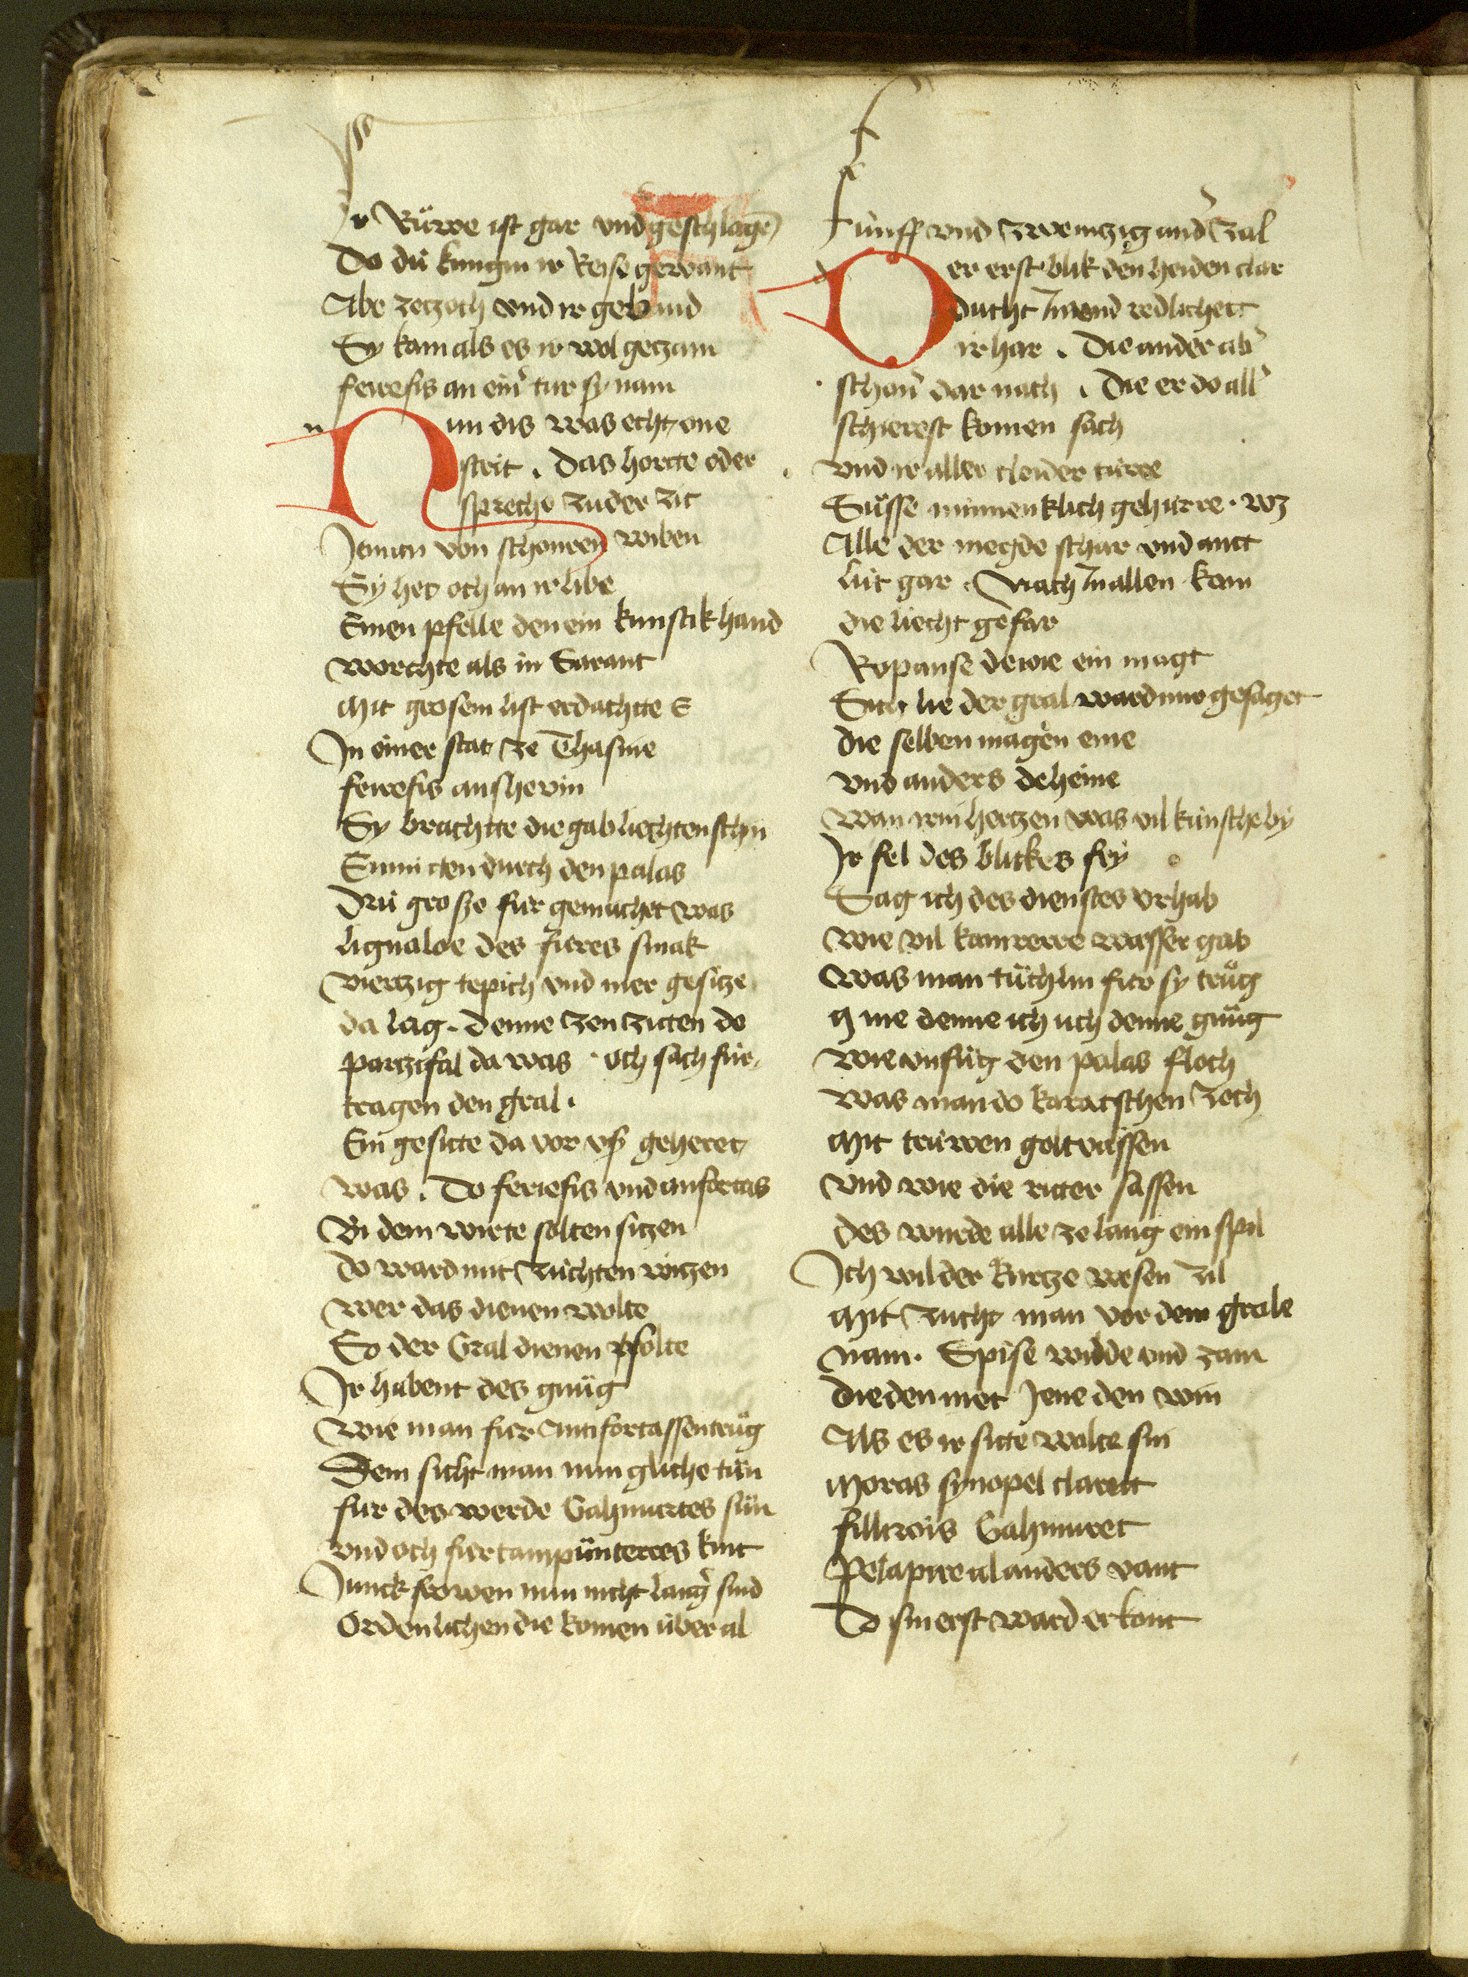 Ir Rüwe ist gar vnd geschlagē
Do dü kungin ir Reise gewant
Abe zetzoch vnd ir gebund
Sy kam als es ir wol getzam
feirefis an einʼ tur sy nam
Nun dis was echt one
strit . Das horete oder
spreche zu der zit
Jeman von schonren wiben
Sy het och an ir libe
Einen pfelle den ein kunstik hand
worchte als in Sarant
Mit grosem list erdachtte E
In einer stat ze Thasme
feirefis anshevin
Sy brachtte die gab liechten schin
Enmitten durch den palas
Drü grosze für gemachet was
lignaloe des füres smak
viertzig tepich vnd mer gesitze
da lag . denne zen ziten do
partzifal da was . Och sach für
tragen den gral .
Ein gesitte da vor vs geheret
was . Do feriefis vnd anfortas
Bi dem wirte solten sitzen
Do ward mit züchten witzen
Wer das dienen wolte
So der Gral dienen solte
Ir habent des gnüg
Wie man für Antifortassen trüg
Dem sicht man nun gliche tün
für des werde Gahmurtes sün
vnd och für tampünterres kint
Junckfrowen nun nicht langʼ sind
Ordenlichen die komen über al
fünff vnd zwenizig andʼ zal
Der erst blik den heiden clar
ducht In vnd redlichett
ir har . Die ander abʼ
schonʼ dar nach . Die er do allʼ
schierest komen sach
vnd ir aller cleider türre
Süsse minnenklich gehürre . wz
Alle der megde schar vnd antt
lüt gar . Nach In allen kam
die liecht gefar
Ropanse dewie ein magt
Sich lie der gral ward mir gesaget
die selben magen eine
vnd anders deheine
Wan irm hertzen was vil künsche by
Ir fel des blickes fey
Sag ich des dienstes vrhab
Wie vil kamrerre wasser gab
Was man tüchlin für sy trüg
Mme denne ich üch denne gnüg
Wie vnfüg den palas floch
Was man do karatschen zoch
Mit trüwen golt vassen
Vnd wie die ritter sassen
Des wurde alle ze lang ein spil
Ich wil der kurtze wesen zil
Mit zucht man vor dem grale
nam . Spise wilde vnd zam
Die den met Jene den win
Als es ir sitte wolte sin
Moras synopel clarett
fillirois Gahmuret
Pelapire al anders vant
Do sin erst ward erkant